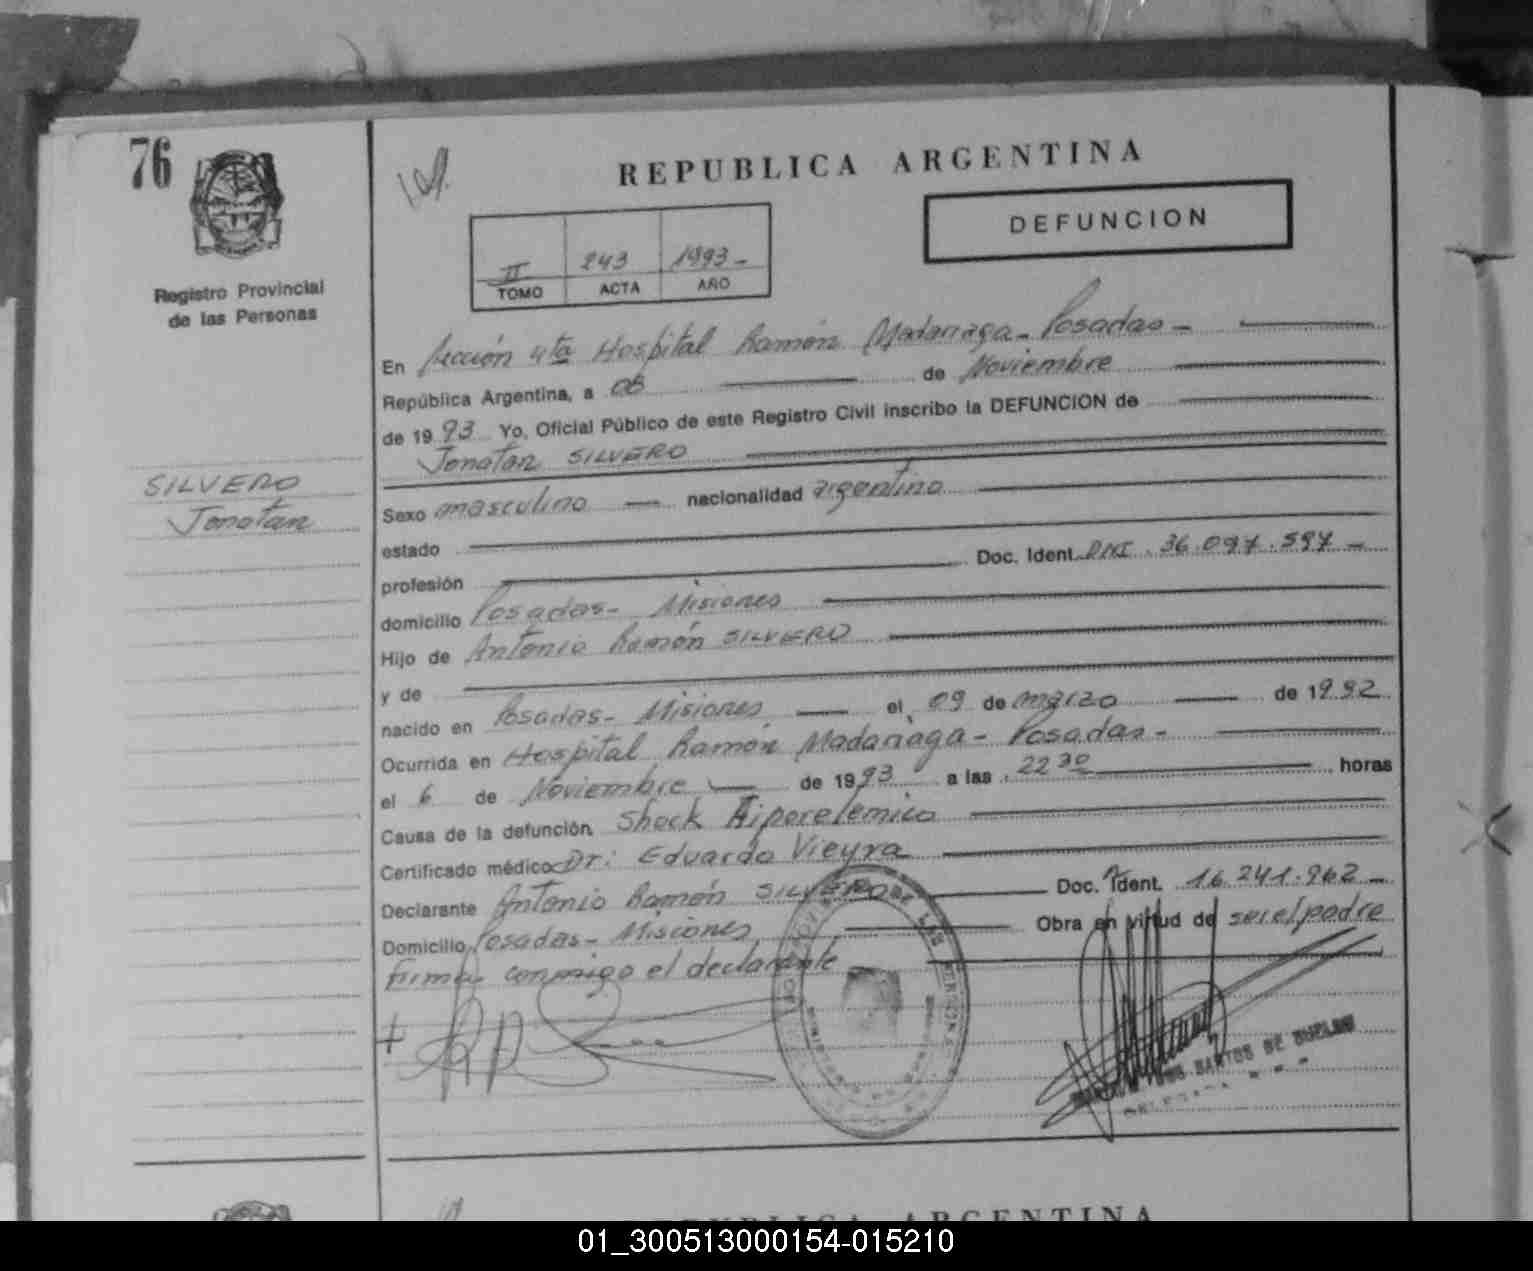 76
REPUBLICA ARGENTINA
DEFUNCION
II 243 1993-
TOMO ACTA AÑO
Registro Provincial
de las Personas
SILVERO
Jonatan
En Sección 4ta Hospital Ramón Madariaga - Posadas -
República Argentina, a 08 de Noviembre
de 1993 Yo, Oficial Público de este Registro Civil inscribo la DEFUNCION de
Jonatan SILVERO
Sexo masculino nacionalidad argentino
estado
profesión Doc. Ident. DNI. 36.097.597 -
domicilio Posadas - Misiones
Hijo de Antonio Ramón SILVERO
y de
nacido en Posadas - Misiones el 09 de marzo de 1992
Ocurrida en Hospital Ramón Madariaga - Posadas -
el 6 de Noviembre de 1993 a las 22 30 horas
Causa de la defunción Shock
Certificado médico Dr: Eduardo Vieyra
Declarante Antonio Ramón SILVERO Doc. Ident. 16.241.962 -
Domicilio Posadas - Misiones Obra en virtud de ser el padre
firma conmigo el declarante
SANTOS DE
REPUBLICA ARGENTINA
01_300513000154-015210